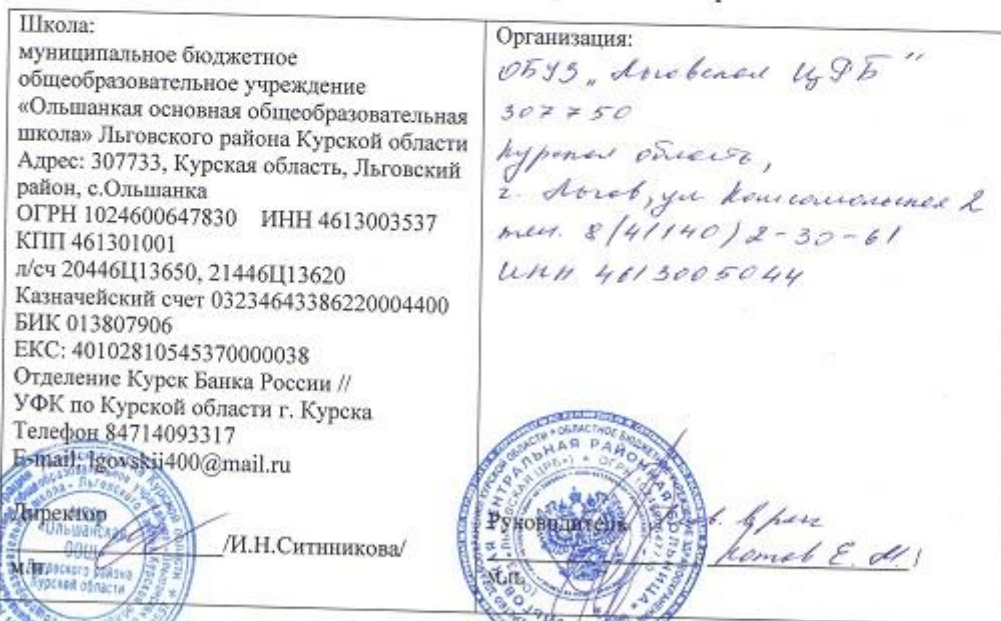 Школа:
муниципальное бюджетное
общеобразовательное учреждение
«Ольшанкая основная общеобразовательная
школа» Льговского района Курской области
Адрес: 307733, Курская область, Льговский
район, с.Ольшанка
ОГРН 1024600647830 ИНН 4613003537
КПП 461301001
л/сч 20446Ц13650, 21446Ц13620
Казначейский счет 03234643386220004400
БИК 013807906
ЕКС: 40102810545370000038
Отделение Курск Банка России //
УФК по Курской области г. Курска
Телефон 84714093317
E-mail: lgovskii400@mail.ru
Директор
/И.Н.Ситнникова/
м.п.
Организация:
ОБУЗ „Льговская ЦРБ"
307750
Курская область,
г. Льгов, ул Комсомольская 2
тел. 8/47140) 2-30-61
ИНН 4613005044
Руководитель Гл. врач
Котов Е. М.
М.П.